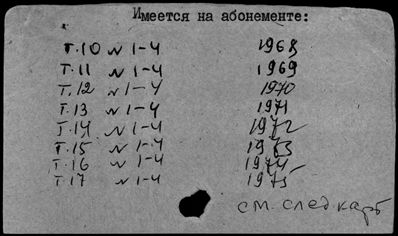 Имеется на абонементе:
Т.10 N 1-4 1968
Т.11 N 1-4 1969
Т.12 N 1-4 1970
Т.13 N 1-4 1971
Т.14 N 1-4 1972
Т.15 N 1-4 1973
Т.16 N 1-4 1974
Т.17 N 1-4 1975
см. след карт